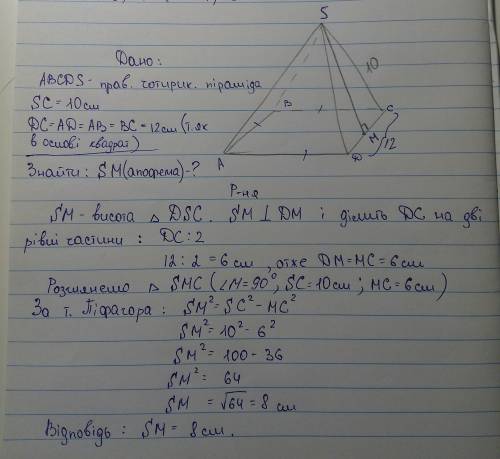 S
Дано:
ABCDS - прав. чотирик. піраміда
SC = 10 см
DC = AD = AB = BC = 12 см (т. як
в основі квадрат)
Знайти: SM (апофема) - ?
10
B
C
M
12
A
D
Р-ня
SM - висота △ DSC. SM ⊥ DM і ділить DC на дві
рівні частини: DC : 2
12 : 2 = 6 см, отже DM = MC = 6 см
Розглянемо △ SMC (∠M = 90°, SC = 10 см; MC = 6 см)
За т. Піфагора: SM² = SC² - MC²
SM² = 10² - 6²
SM² = 100 - 36
SM² = 64
SM = √64 = 8 см
Відповідь: SM = 8 см.